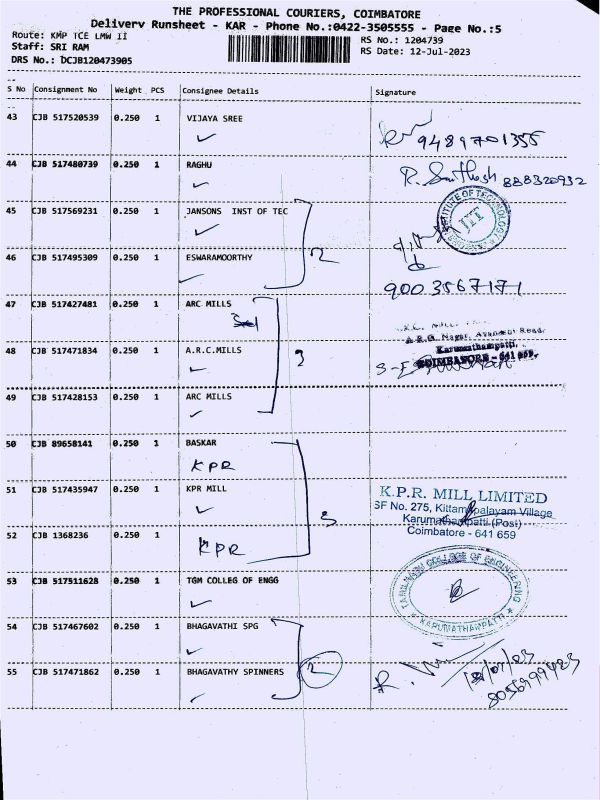 THE PROFESSIONAL COURIERS, COIMBATORE
Delivery Runsheet - KAR - Phone No.:0422-3505555 - Page No.:5
Route: KMP TCE LMW II
RS No.: 1204739
Staff: SRI RAM
RS Date: 12-Jul-2023
DRS No.: DCJB120473905
S No Consignment No Weight PCS Consignee Details Signature
43 CJB 517520539 0.250 1 VIJAYA SREE
9489701355
44 CJB 517480739 0.250 1 RAGHU
R. Santhosh 888320932
45 CJB 517569231 0.250 1 JANSONS INST OF TEC
INSTITUTE OF TECHNOLOGY
JIT
46 CJB 517495309 0.250 1 ESWARAMOORTHY
2
9003567171
47 CJB 517427481 0.250 1 ARC MILLS
A.R.C. Nagar, Avanashi Road,
Karumathampatti,
48 CJB 517471834 0.250 1 A.R.C.MILLS
3
COIMBATORE - 641 659.
49 CJB 517428153 0.250 1 ARC MILLS
50 CJB 89658141 0.250 1 BASKAR
KPR
51 CJB 517435947 0.250 1 KPR MILL
K.P.R. MILL LIMITED
SF No. 275, Kittampalayam Village
Karumathampatti (Post)
Coimbatore - 641 659
3
52 CJB 1368236 0.250 1
KPR
53 CJB 517511628 0.250 1 TGM COLLEG OF ENGG
TAMILNADU COLLEGE OF ENGINEERING
KARUMATHAMPATTI
54 CJB 517467602 0.250 1 BHAGAVATHI SPG
55 CJB 517471862 0.250 1 BHAGAVATHY SPINNERS
2